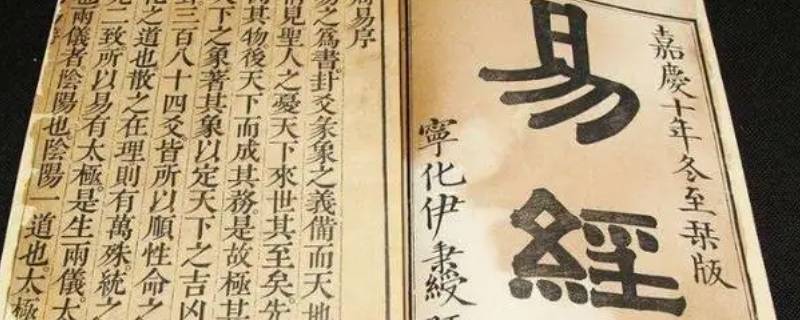 嘉慶十年冬至栞版
易經
寧化伊秉綬
周易序
易之為書卦爻彖象之義備而天地
情見聖人之憂天下來世其至矣。先
其物後天下而成其務。是故極其
天下之象著其象以定天下之吉凶
卦三百八十四爻。皆所以順性命之
化之道也散之在理則有萬殊。統之
二致所以易有太極。是生兩儀。太
也兩儀者陰陽也陰陽一道也。太極